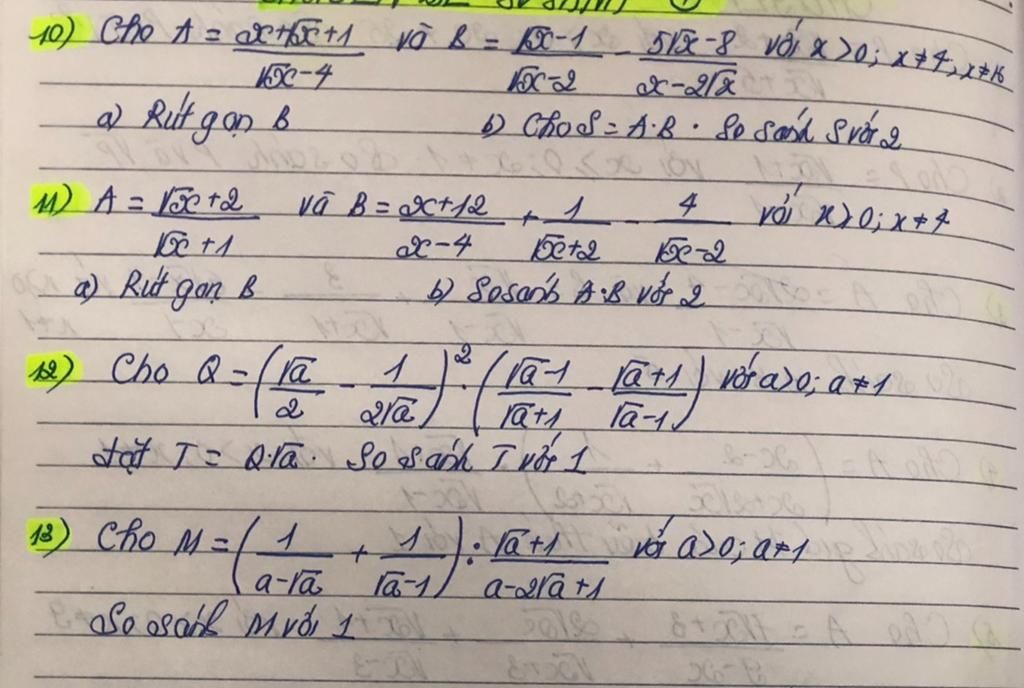 10) Cho A = (x+√x+1)/(√x-4) và B = (√x-1)/(√x-2) - (5√x-8)/(x-2√x) với x>0; x≠4, x≠16
a) Rút gọn B b) Cho S = A.B. So sánh S với 2
11) A = (√x+2)/(√x+1) và B = (x+12)/(x-4) + 1/(√x+2) - 4/(√x-2) với x>0; x≠4
a) Rút gọn B b) So sánh A.B với 2
12) Cho Q = (√a/2 - 1/(2√a))². ((√a-1)/(√a+1) - (√a+1)/(√a-1)) với a>0; a≠1
đặt T = Q.√a. So sánh T với 1
13) Cho M = (1/(a-√a) + 1/(√a-1)) : (√a+1)/(a-2√a+1) với a>0; a≠1
So sánh M với 1